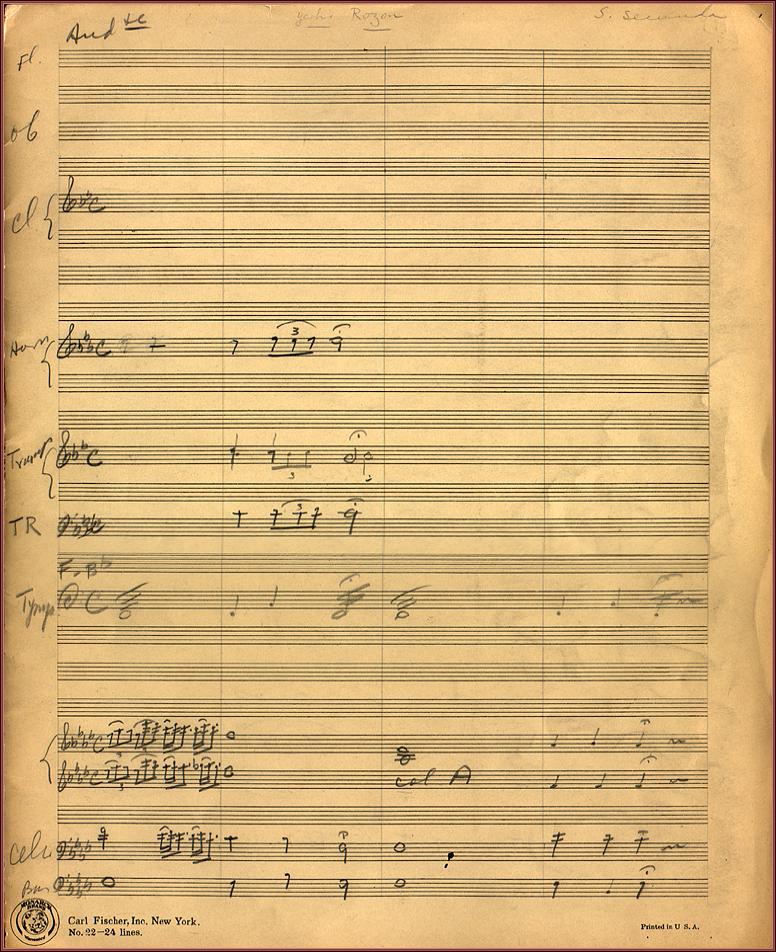 And te S. Secunda
Fl.
ob
cl
Horn
3
Trump
3
TR
3
F. Bb
Tymp
col A
Celli
Bass
Carl Fischer, Inc. New York.
No. 22—24 lines.
Printed in U. S. A.